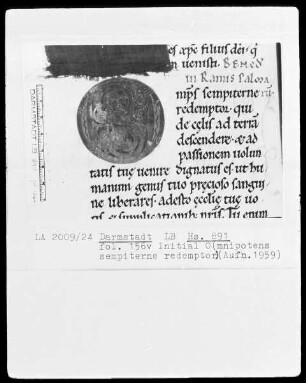 es xpe filius dei q
uenisti. BENED
in Ramis Palmar
mps sempiterne
redemptor qui
de celis ad terra
descendere & ad
passionem uolun
tatis tue uenire dignatus es ut hu
manum genus tuo precioso sangui
ne liberares. adesto ecclie tue uo
tis & supplicationib; nris. Tu enim
LA 2009/24 Darmstadt LB Hs. 891
fol. 156v Initial O(mnipotens
sempiterne redemptor)(Aufn.1959)